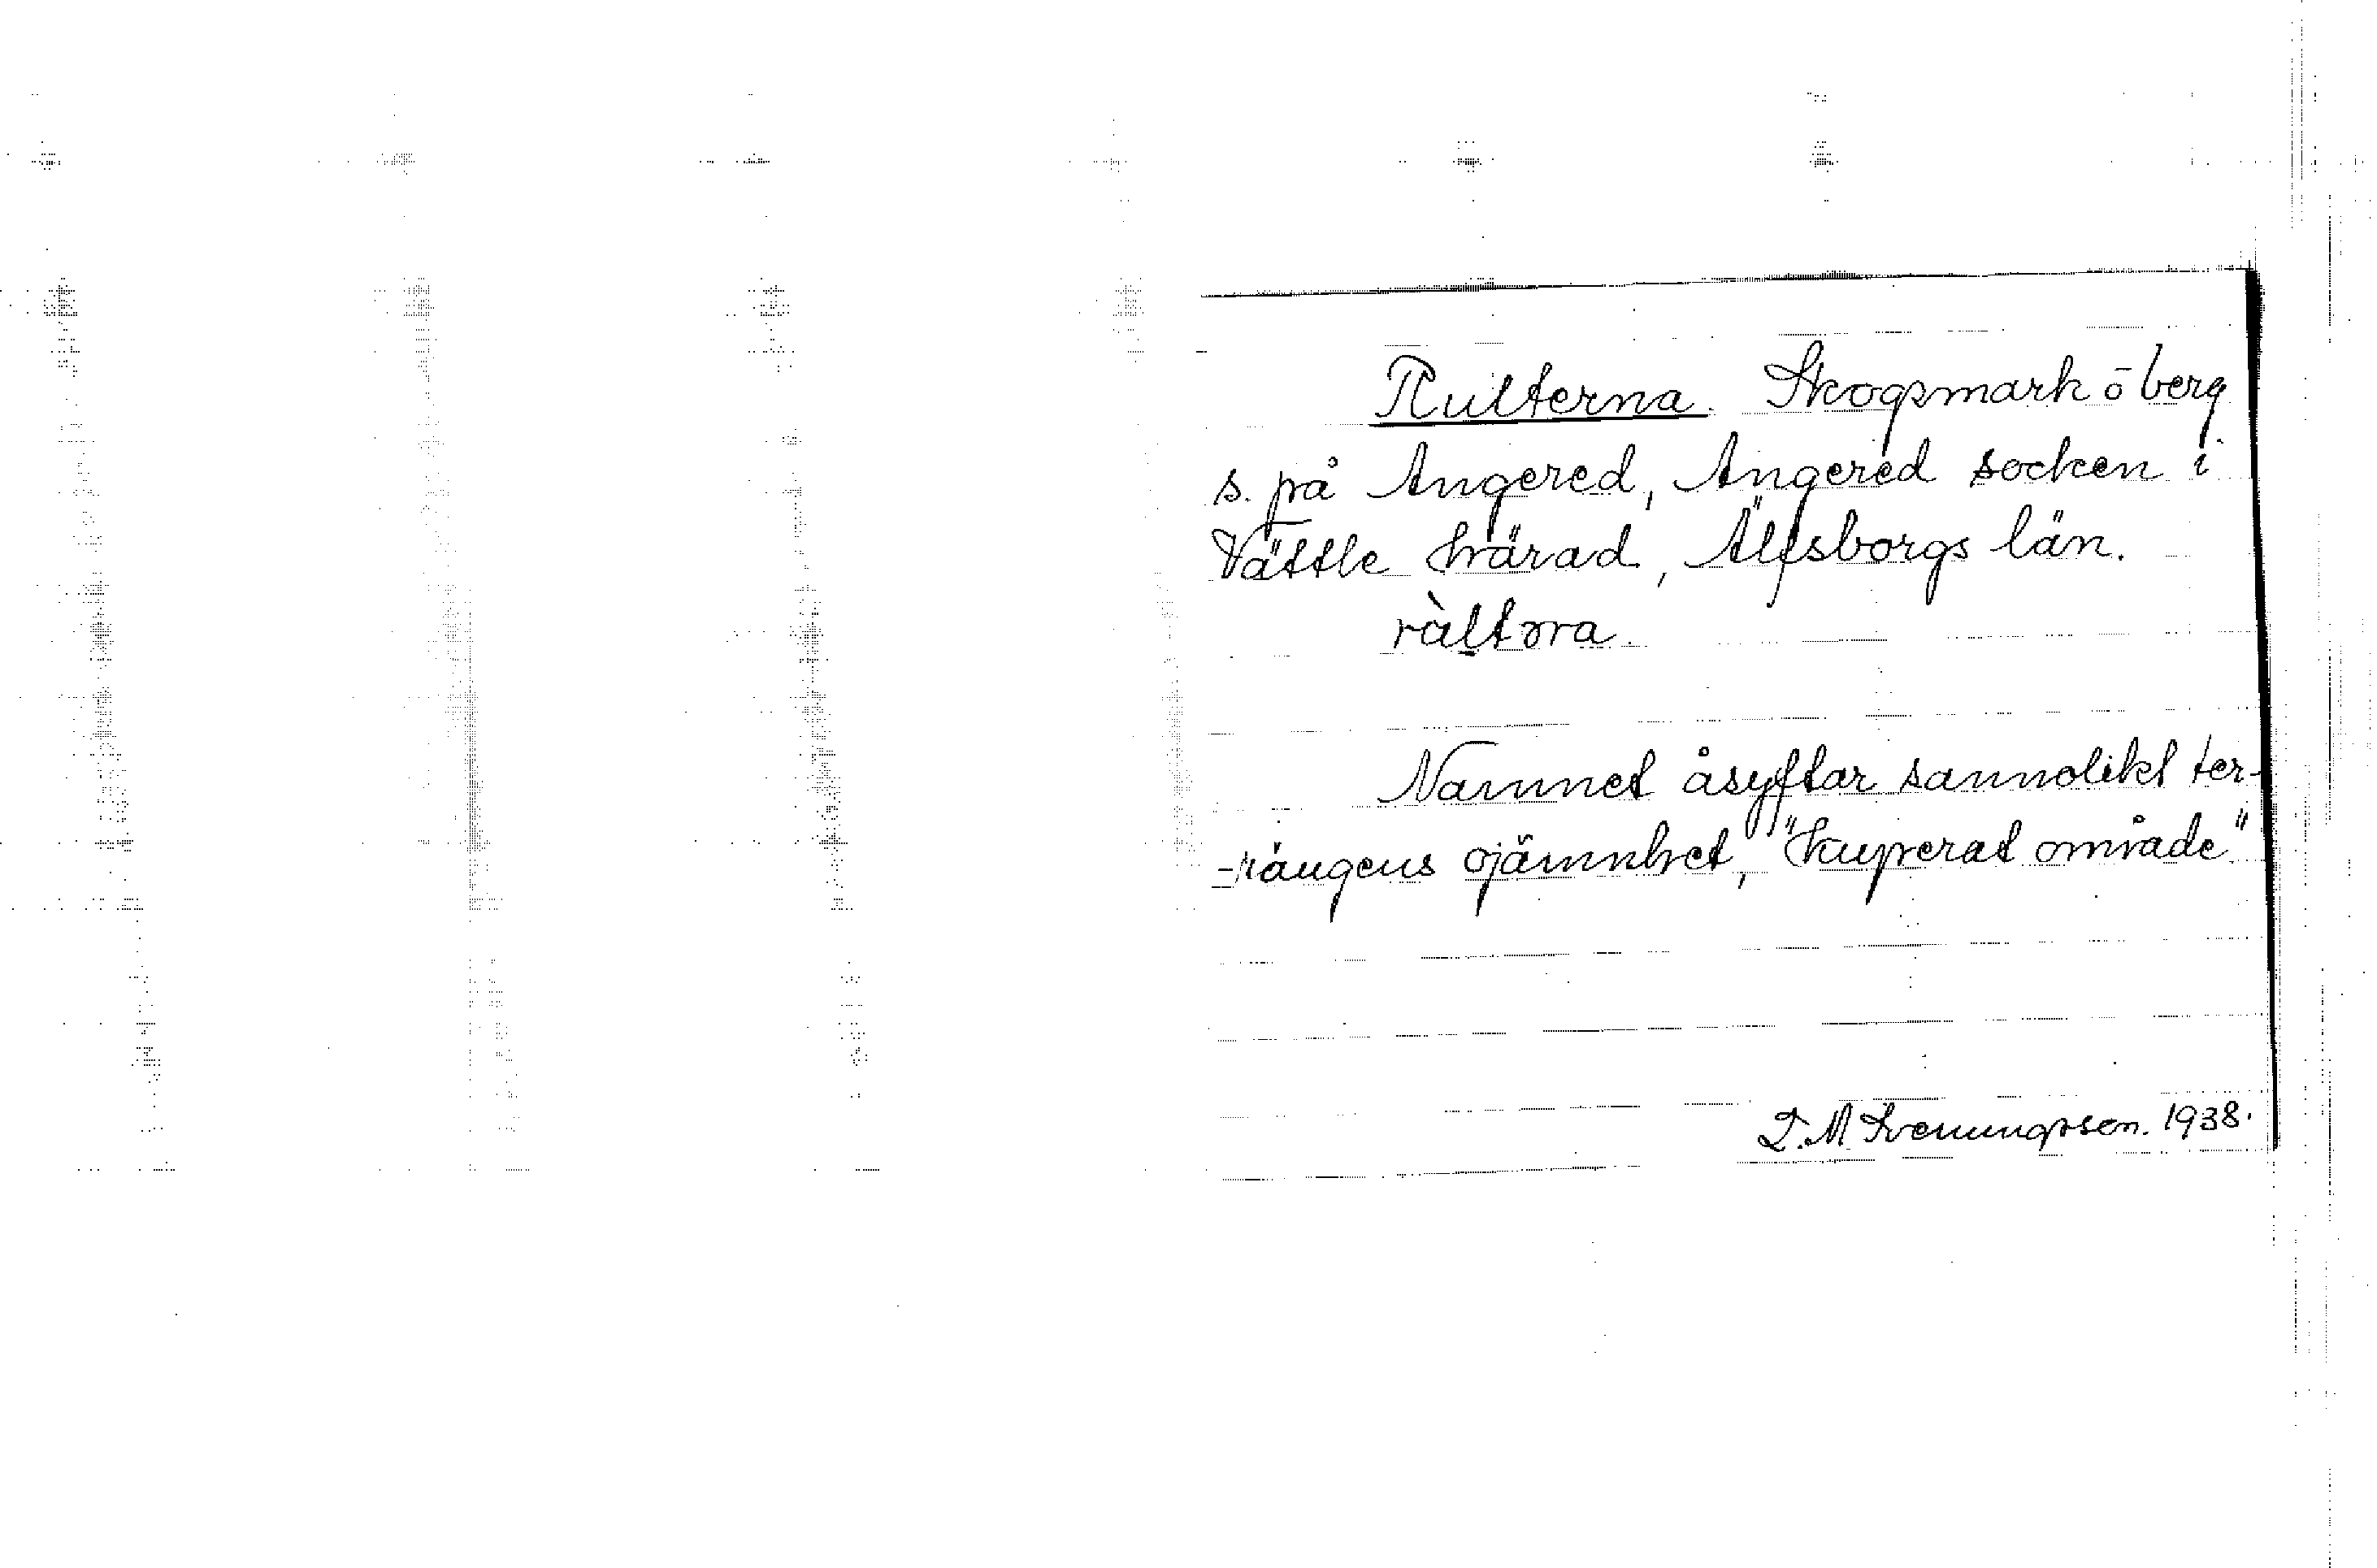 Rulterna. Skogsmark ō berg
s. på Angered, Angered socken i
Vättle härad, Älfsborgs län.
ràltɔra.
Namnet åsyftar sannolikt ter-
-rängens ojämnhet, "kuperat område"
D. M Svenungsson. 1938.